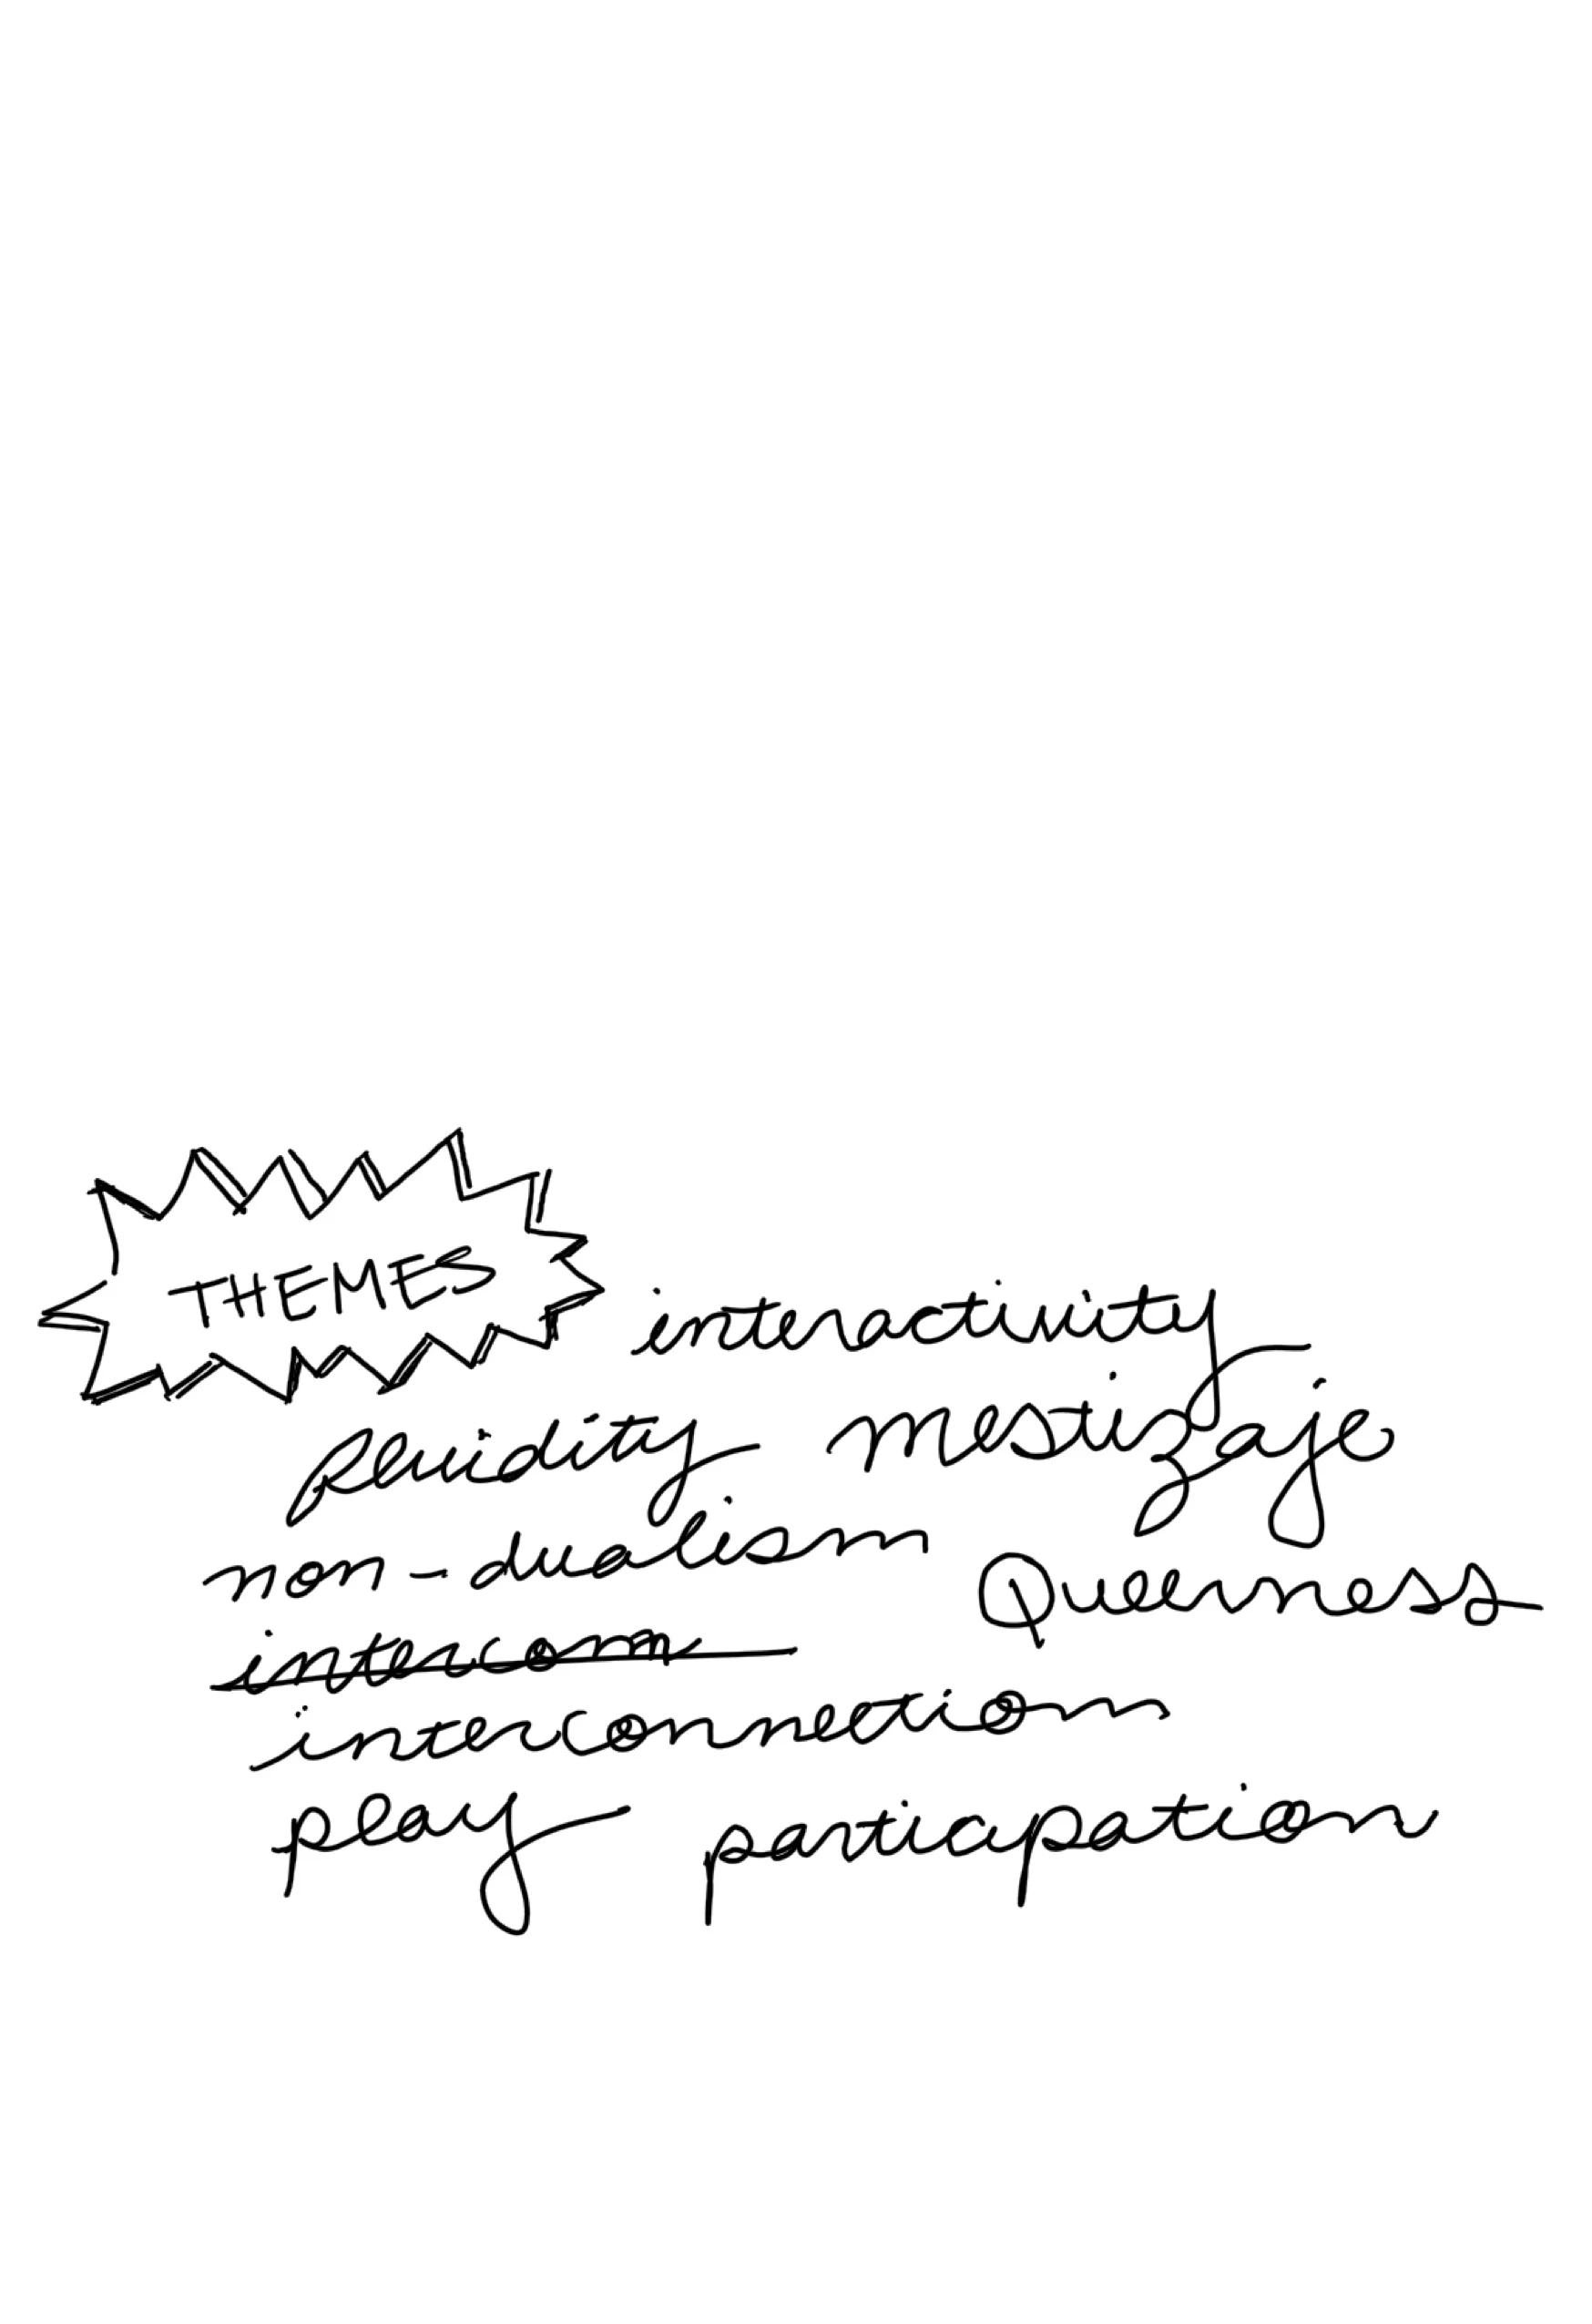 THEMES
interactivity
fluidity mestizaje
non-dualism Queerness
intercom
interconnection
play participation